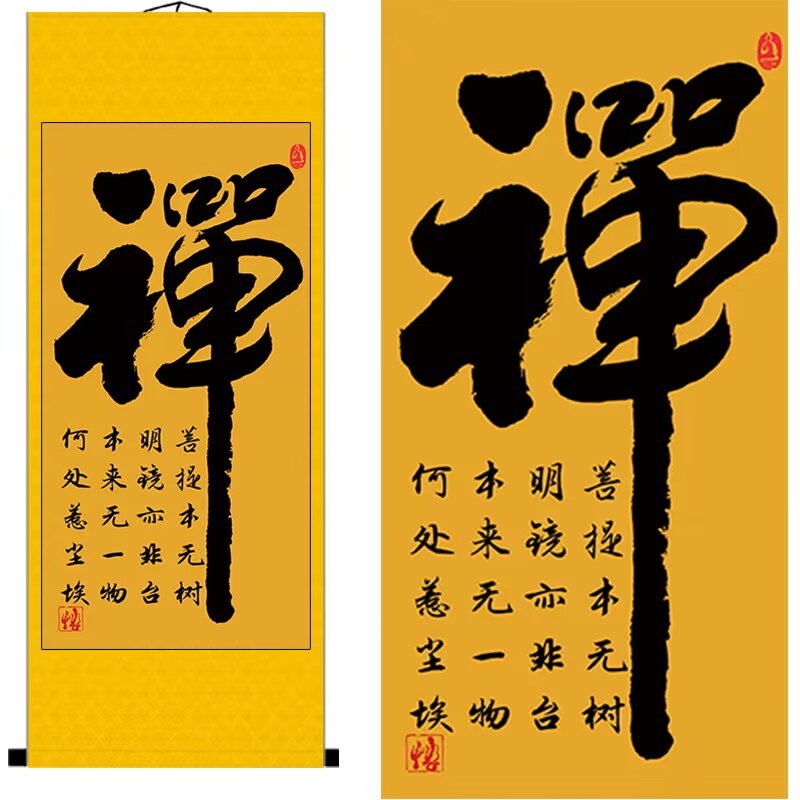 禪
菩提本无树
明镜亦非台
本来无一物
何处惹尘埃
禪
菩提本无树
明镜亦非台
本来无一物
何处惹尘埃